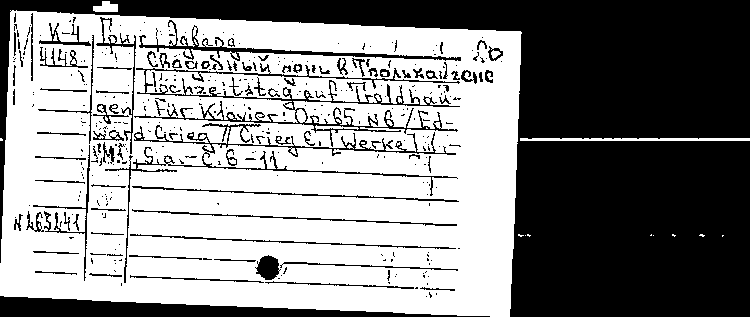 М К-4 Григ, Эдвард 50
4148 Свадебный день в Трольхаугене
Hochzeitstag auf Troldhau-
gen: Für Klavier: Op. 65. N6 / Ed-
ward Grieg // Grieg E. [Werke].
S.a. - С. 6 - 11.
N265241